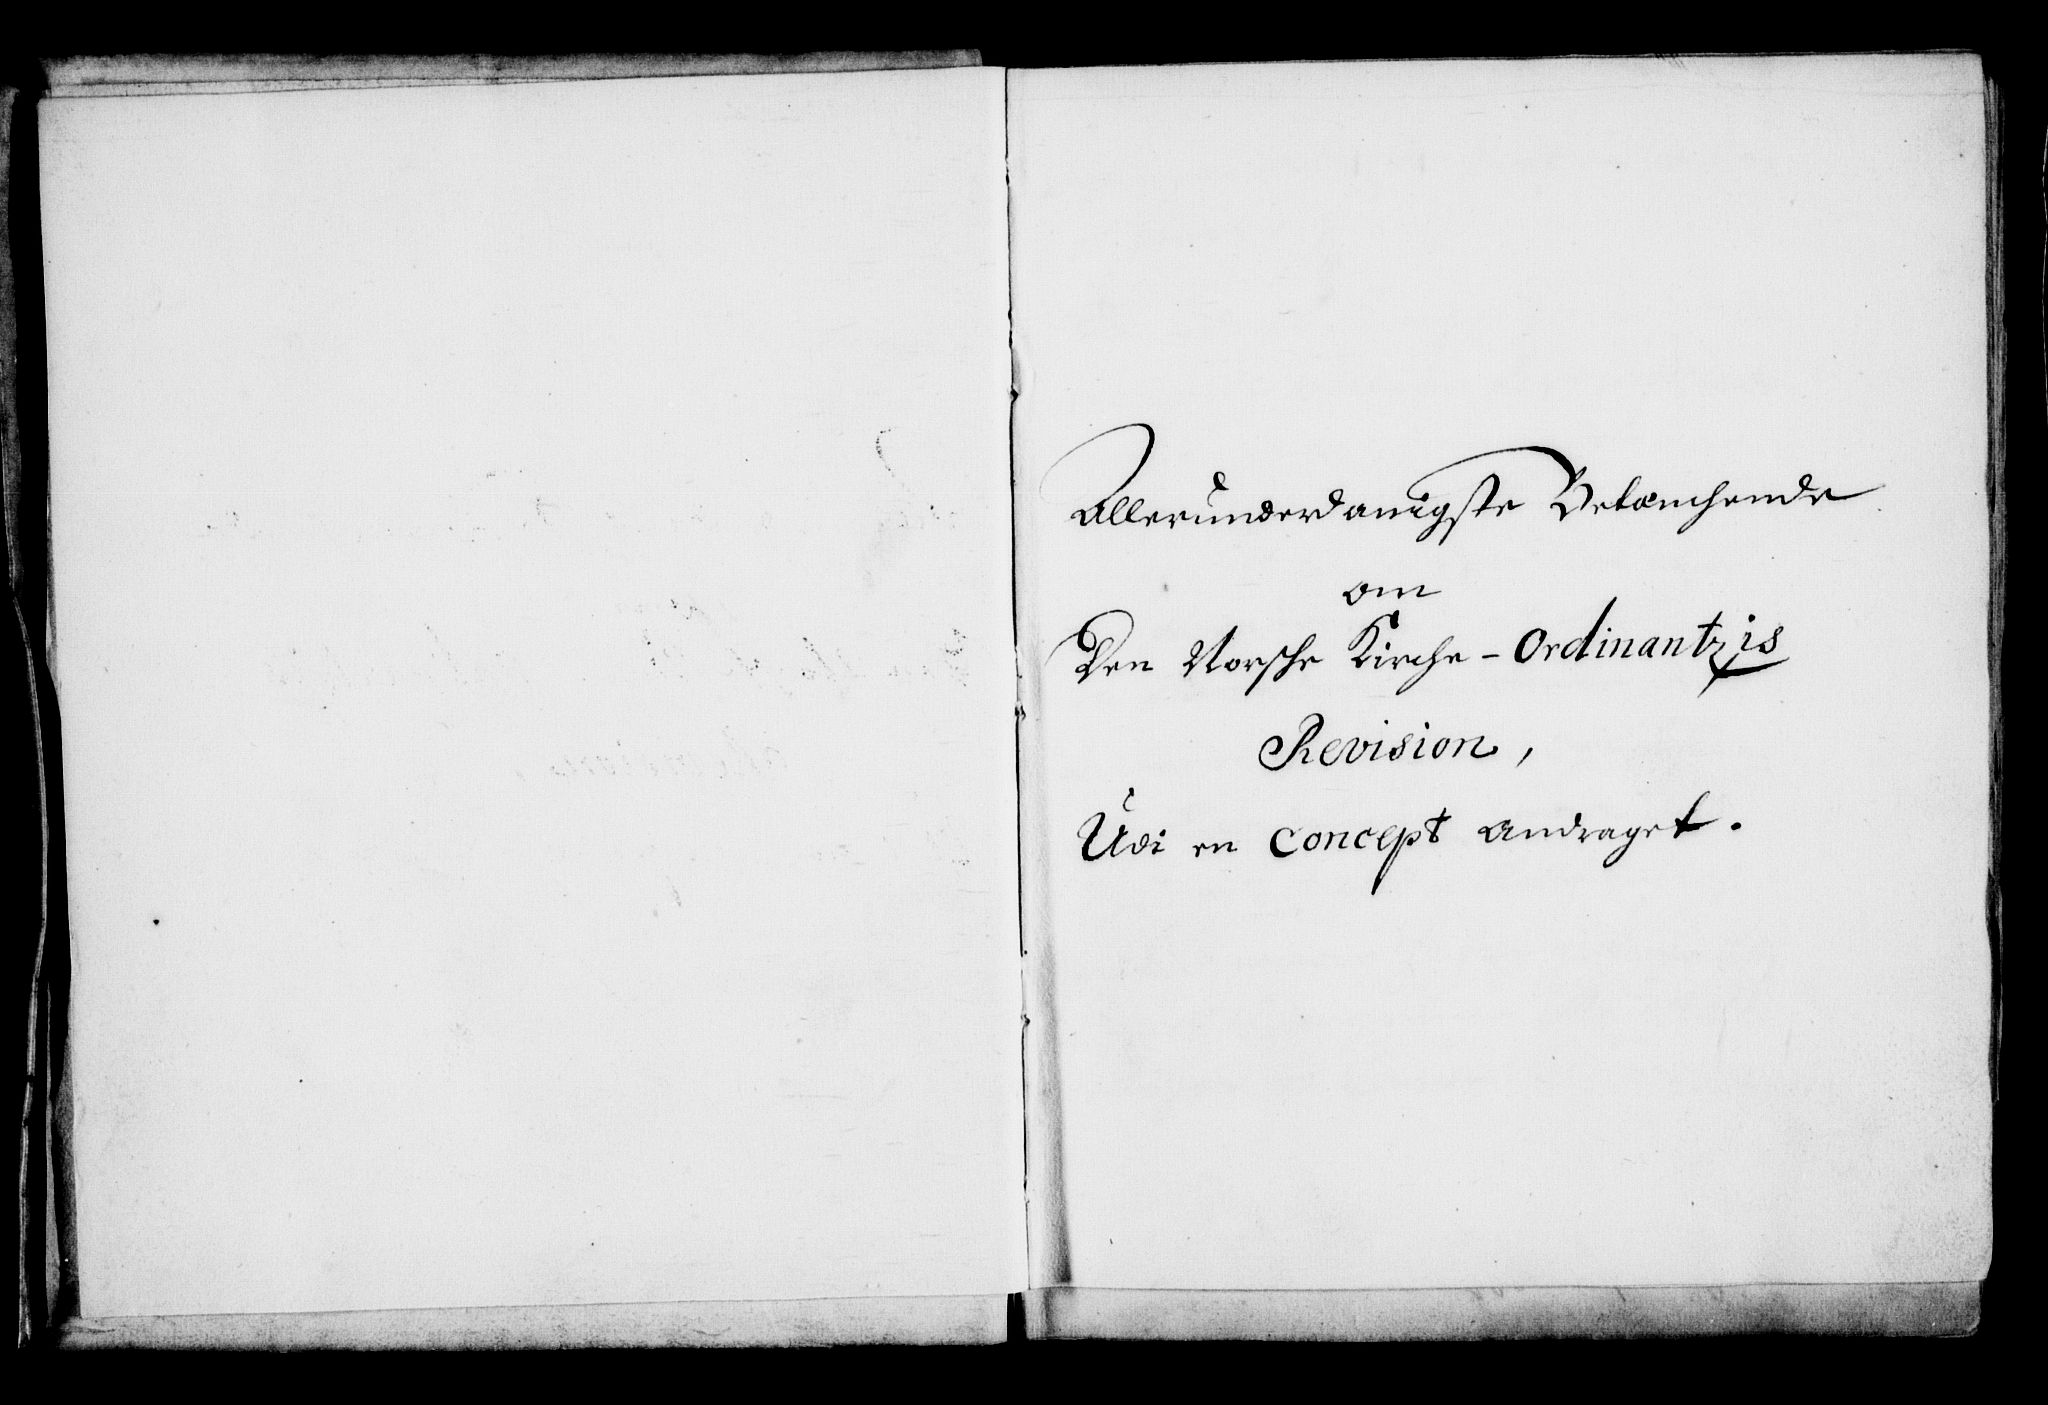 Allerunderdanigste Betænchende
om
Den Norsche Kirche - Ordinantzis
Revision,
Udi en Concept andraget.